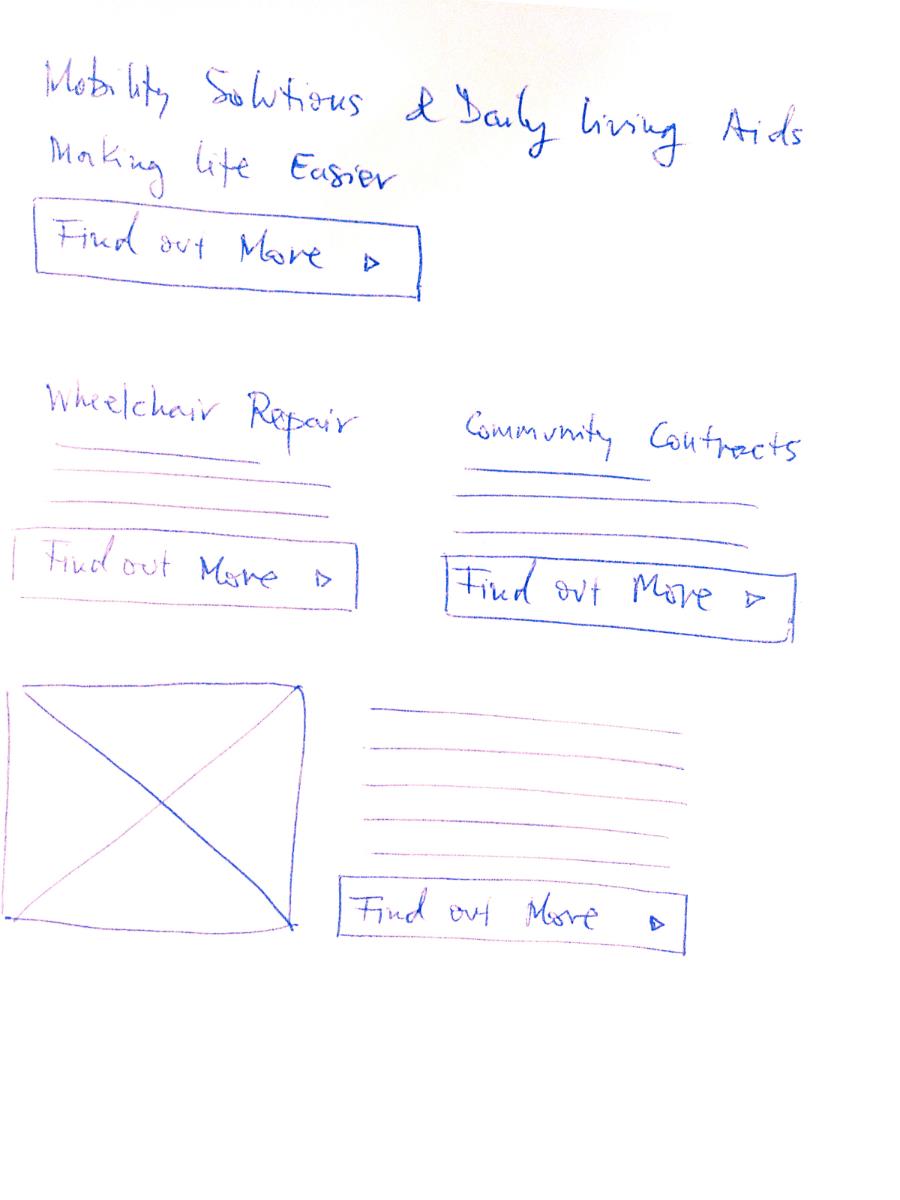 Mobility Solutions & Daily Living Aids
Making life Easier
Find out More ▷
Wheelchair Repair
Find out More ▷
Community Contracts
Find out More ▷
Find out More ▷